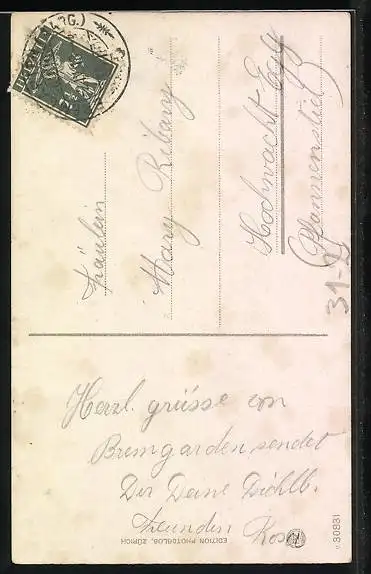 (ARG.)
Fräulein
Mary Ribary
Hochwacht-Egg
Pfannenstiel
31-2
Herzl. grüsse von
Bremgarden, sendet
Dir Deine
Freundin Rosa
EDITION PHOTOGLOB, ZÜRICH
30831